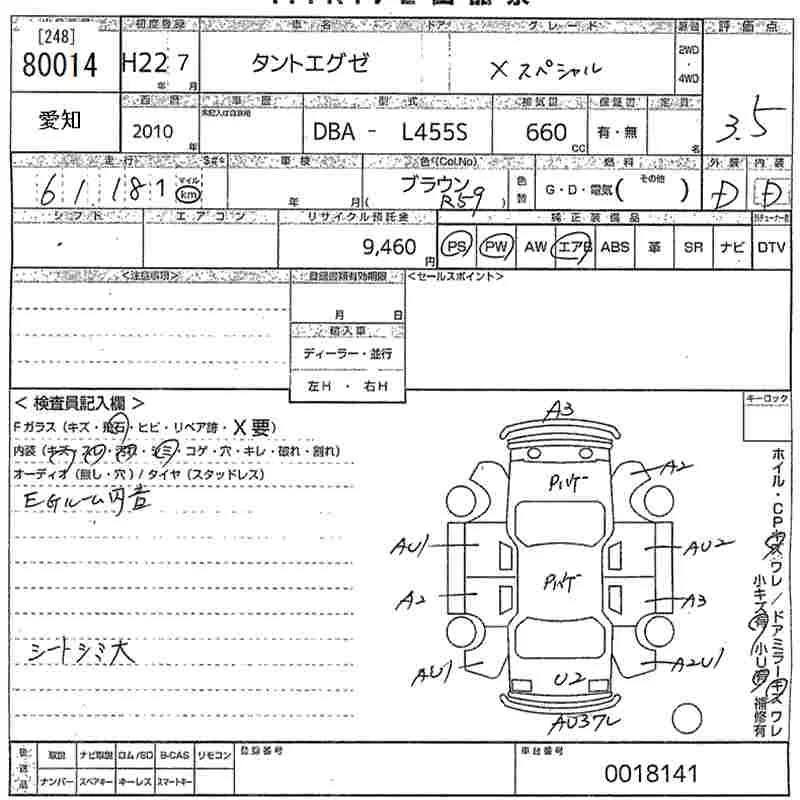 [248]
80014
初度登録
H22 7
年 月
車名
ドア
グレード
タントエグゼ
X スペシャル
2WD
4WD
評価点
3.5
愛知
西暦
2010
年
車歴
型式
DBA - L455S
排気量
660
CC
保証書
有・無
定員
名
走行
61,181
マイル
km
車検
年 月
色(Col.No)
ブラウン
( R59 )
色替
燃料
G・D・電気( その他 )
外装
D
内装
D
シフト
エアコン
リサイクル預託金
9,460
円
純正装備品
PS PW AW エアB ABS 革 SR ナビ DTV
<注意事項>
登録書類有効期限
月 日
輸入車
ディーラー・並行
左H ・ 右H
<セールスポイント>
キーロック
< 検査員記入欄 >
Fガラス (キズ・飛石・ヒビ・リペア跡・X要)
内装 (キズ・スレ・汚れ・シミ・コゲ・穴・キレ・破れ・割れ)
オーディオ (無し・穴) / タイヤ (スタッドレス)
EGルーム内音
シートシミ大
A3
Pハゲ
A2
AU1
AU2
Pハゲ
A2
A3
AU1
U2
A2U1
AU37レ
ホイル・CPキズワレ / ドアミラーキズワレ
小キズ有 小U有 補修有
後送品
取説 ナビ取説 ロム/SD B-CAS リモコン
ナンバー スペアキー キーレス スマートキー
登録番号
車台番号
0018141